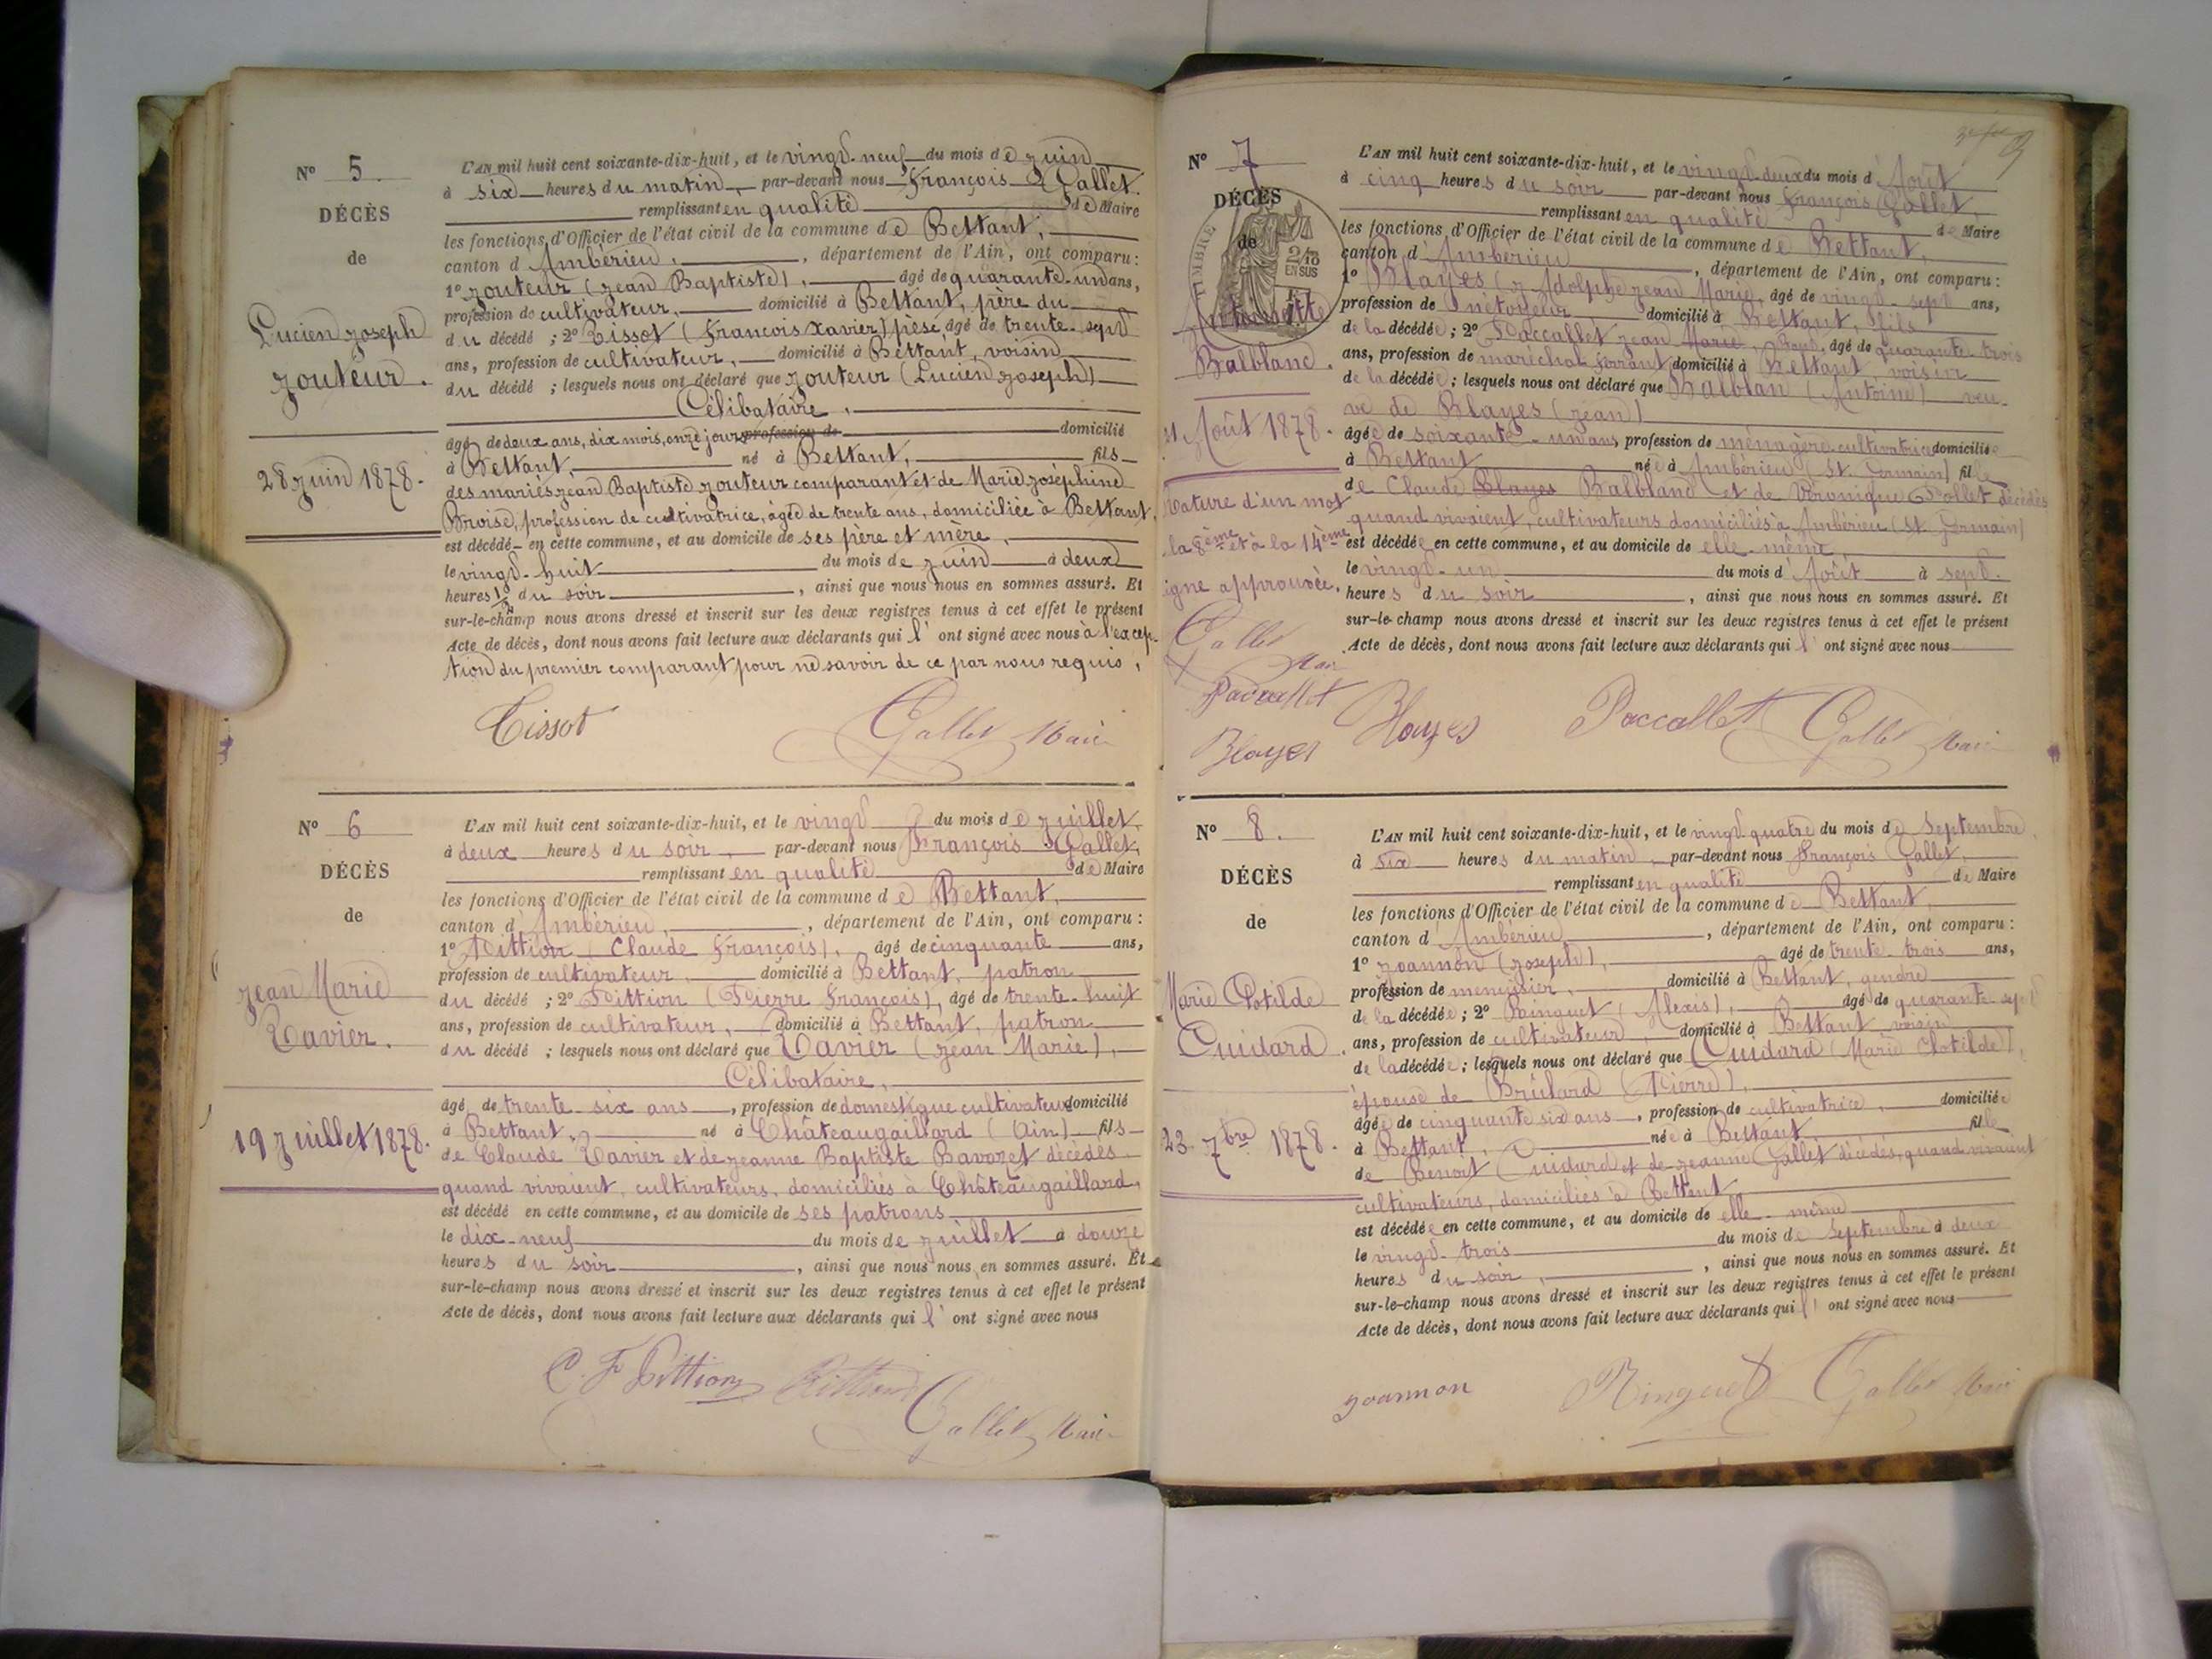 N° 5.
DÉCÈS
de
Lucien Joseph
Jouteur.
28 Juin 1878.
L'AN mil huit cent soixante-dix-huit, et le vingt-neuf du mois de Juin
à six heures du matin, par-devant nous François Gallet.
remplissant en qualité de Maire
les fonctions d'Officier de l'état civil de la commune de Bettant,
canton d'Ambérieu, département de l'Ain, ont comparu :
1° Jouteur (Jean Baptiste), âgé de quarante-un ans,
profession de cultivateur, domicilié à Bettant, père du
du décédé ; 2° Tissot (François Xavier) âgé de trente-sept
ans, profession de cultivateur, domicilié à Bettant, voisin
du décédé ; lesquels nous ont déclaré que Jouteur (Lucien Joseph)
Célibataire,
âgé de deux ans, dix mois, onze jours profession de domicilié
à Bettant, né à Bettant, fils
des mariés Jean Baptiste Jouteur comparant et de Marie Joséphine
Broise, profession de cultivatrice, âgée de trente ans, domiciliée à Bettant,
est décédé en cette commune, et au domicile de ses père et mère,
le vingt-huit du mois de Juin à deux
heures 1/2 du soir, ainsi que nous nous en sommes assuré. Et
sur-le-champ nous avons dressé et inscrit sur les deux registres tenus à cet effet le présent
Acte de décès, dont nous avons fait lecture aux déclarants qui l'ont signé avec nous à l'excep-
tion du premier comparant pour ne savoir de ce par nous requis.
Tissot Gallet Maire
N° 6
DÉCÈS
de
Jean Marie
Tavier.
19 Juillet 1878.
L'AN mil huit cent soixante-dix-huit, et le vingt du mois de Juillet
à deux heures du soir, par-devant nous François Gallet,
remplissant en qualité de Maire
les fonctions d'Officier de l'état civil de la commune de Bettant,
canton d'Ambérieu, département de l'Ain, ont comparu :
1° Pittion (Claude François), âgé de cinquante ans,
profession de cultivateur, domicilié à Bettant, patron
du décédé ; 2° Pittion (Pierre François), âgé de trente-huit
ans, profession de cultivateur, domicilié à Bettant, patron
du décédé ; lesquels nous ont déclaré que Tavier (Jean Marie),
Célibataire,
âgé de trente-six ans, profession de domestique cultivateur domicilié
à Bettant, né à Châteaugaillard (Ain) fils
de Claude Tavier et de Jeanne Baptiste Bavozet décédés
quand vivaient, cultivateurs, domiciliés à Châteaugaillard,
est décédé en cette commune, et au domicile de ses patrons
le dix-neuf du mois de Juillet à douze
heures du soir, ainsi que nous nous en sommes assuré. Et
sur-le-champ nous avons dressé et inscrit sur les deux registres tenus à cet effet le présent
Acte de décès, dont nous avons fait lecture aux déclarants qui l'ont signé avec nous
C. F Pittion Pittion Gallet Maire
N° 7
DÉCÈS
de
TIMBRE
2/10
EN SUS
Balbland.
Août 1878.
Rature d'un mot
la 8ème et à la 14ème
igne approuvée.
Gallet
Maire
Paccallet
Blayes
L'AN mil huit cent soixante-dix-huit, et le vingt-deux du mois d'Août
à cinq heures du soir par-devant nous François Gallet,
remplissant en qualité de Maire
les fonctions d'Officier de l'état civil de la commune de Bettant,
canton d'Ambérieu, département de l'Ain, ont comparu :
1° Blayes (Adolphe Jean Marie, âgé de vingt-sept ans,
profession de domicilié à Bettant, fils
de la décédée ; 2° Paccallet Jean Marie, âgé de quarante-trois
ans, profession de maréchal ferrant domicilié à Bettant, voisin
de la décédée ; lesquels nous ont déclaré que Balblan (Antoine) veu-
ve de Blayes (Jean)
âgée de soixante-un ans, profession de ménagère cultivatrice domiciliée
à Bettant née à Ambérieu (St. Germain) fille
de Claude Blayes Balbland et de Véronique Pollet décédés
quand vivaient, cultivateurs domiciliés à Ambérieu (St. Germain)
est décédée en cette commune, et au domicile de elle-même,
le vingt-un du mois d'Août à sept
heures du soir, ainsi que nous nous en sommes assuré. Et
sur-le-champ nous avons dressé et inscrit sur les deux registres tenus à cet effet le présent
Acte de décès, dont nous avons fait lecture aux déclarants qui l'ont signé avec nous
Blayes Paccallet Gallet Maire
N° 8.
DÉCÈS
de
Marie Clotilde
Cuidard.
23 7bre 1878.
L'AN mil huit cent soixante-dix-huit, et le vingt-quatre du mois de Septembre
à six heures du matin, par-devant nous François Gallet,
remplissant en qualité de Maire
les fonctions d'Officier de l'état civil de la commune de Bettant,
canton d'Ambérieu, département de l'Ain, ont comparu :
1° Joannon (Joseph), âgé de trente-trois ans,
profession de menuisier, domicilié à Bettant, gendre
de la décédée ; 2° Ringuet (Alexis), âgé de quarante-sept
ans, profession de cultivateur, domicilié à Bettant voisin
de la décédée ; lesquels nous ont déclaré que Cuidard (Marie Clotilde),
épouse de Brûlard (Pierre),
âgée de cinquante-six ans, profession de cultivatrice, domiciliée
à Bettant, née à Bettant fille
de Benoit Cuidard et de Jeanne Gallet décédés, quand vivaient
cultivateurs, domiciliés à Bettant
est décédée en cette commune, et au domicile de elle-même
le vingt-trois du mois de Septembre à deux
heures du soir, ainsi que nous nous en sommes assuré. Et
sur-le-champ nous avons dressé et inscrit sur les deux registres tenus à cet effet le présent
Acte de décès, dont nous avons fait lecture aux déclarants qui l'ont signé avec nous
Joannon Ringuet Gallet Maire